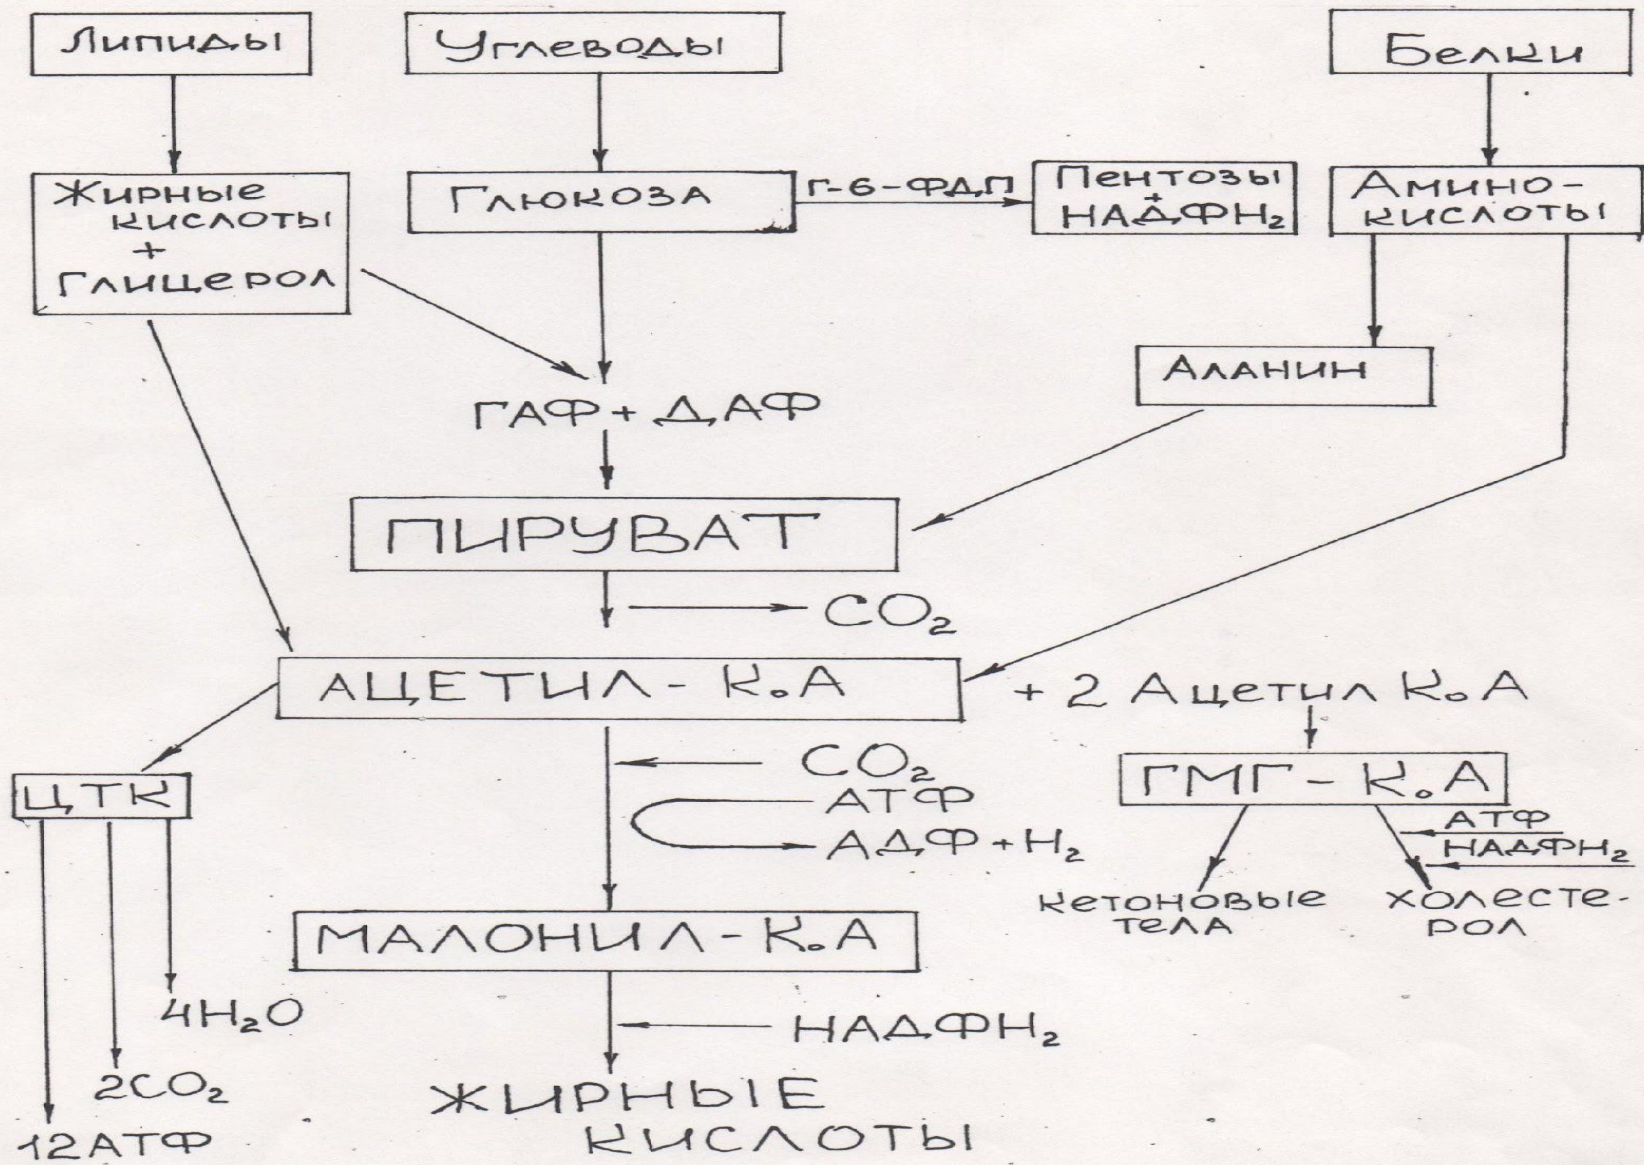 Липиды
Углеводы
Белки
Жирные
кислоты
+
Глицерол
Глюкоза
Г-6-ФДП
Пентозы
+
НАДФН₂
Амино-
кислоты
Аланин
ГАФ + ДАФ
ПИРУВАТ
CO₂
АЦЕТИЛ - К.А
+ 2 Ацетил К.А
ЦТК
CO₂
АТФ
АДФ + Н₂
ГМГ - К.А
АТФ
НАДФН₂
кетоновые
тела
холесте-
рол
МАЛОНИЛ - К.А
4H₂O
НАДФН₂
2CO₂
ЖИРНЫЕ
КИСЛОТЫ
12АТФ